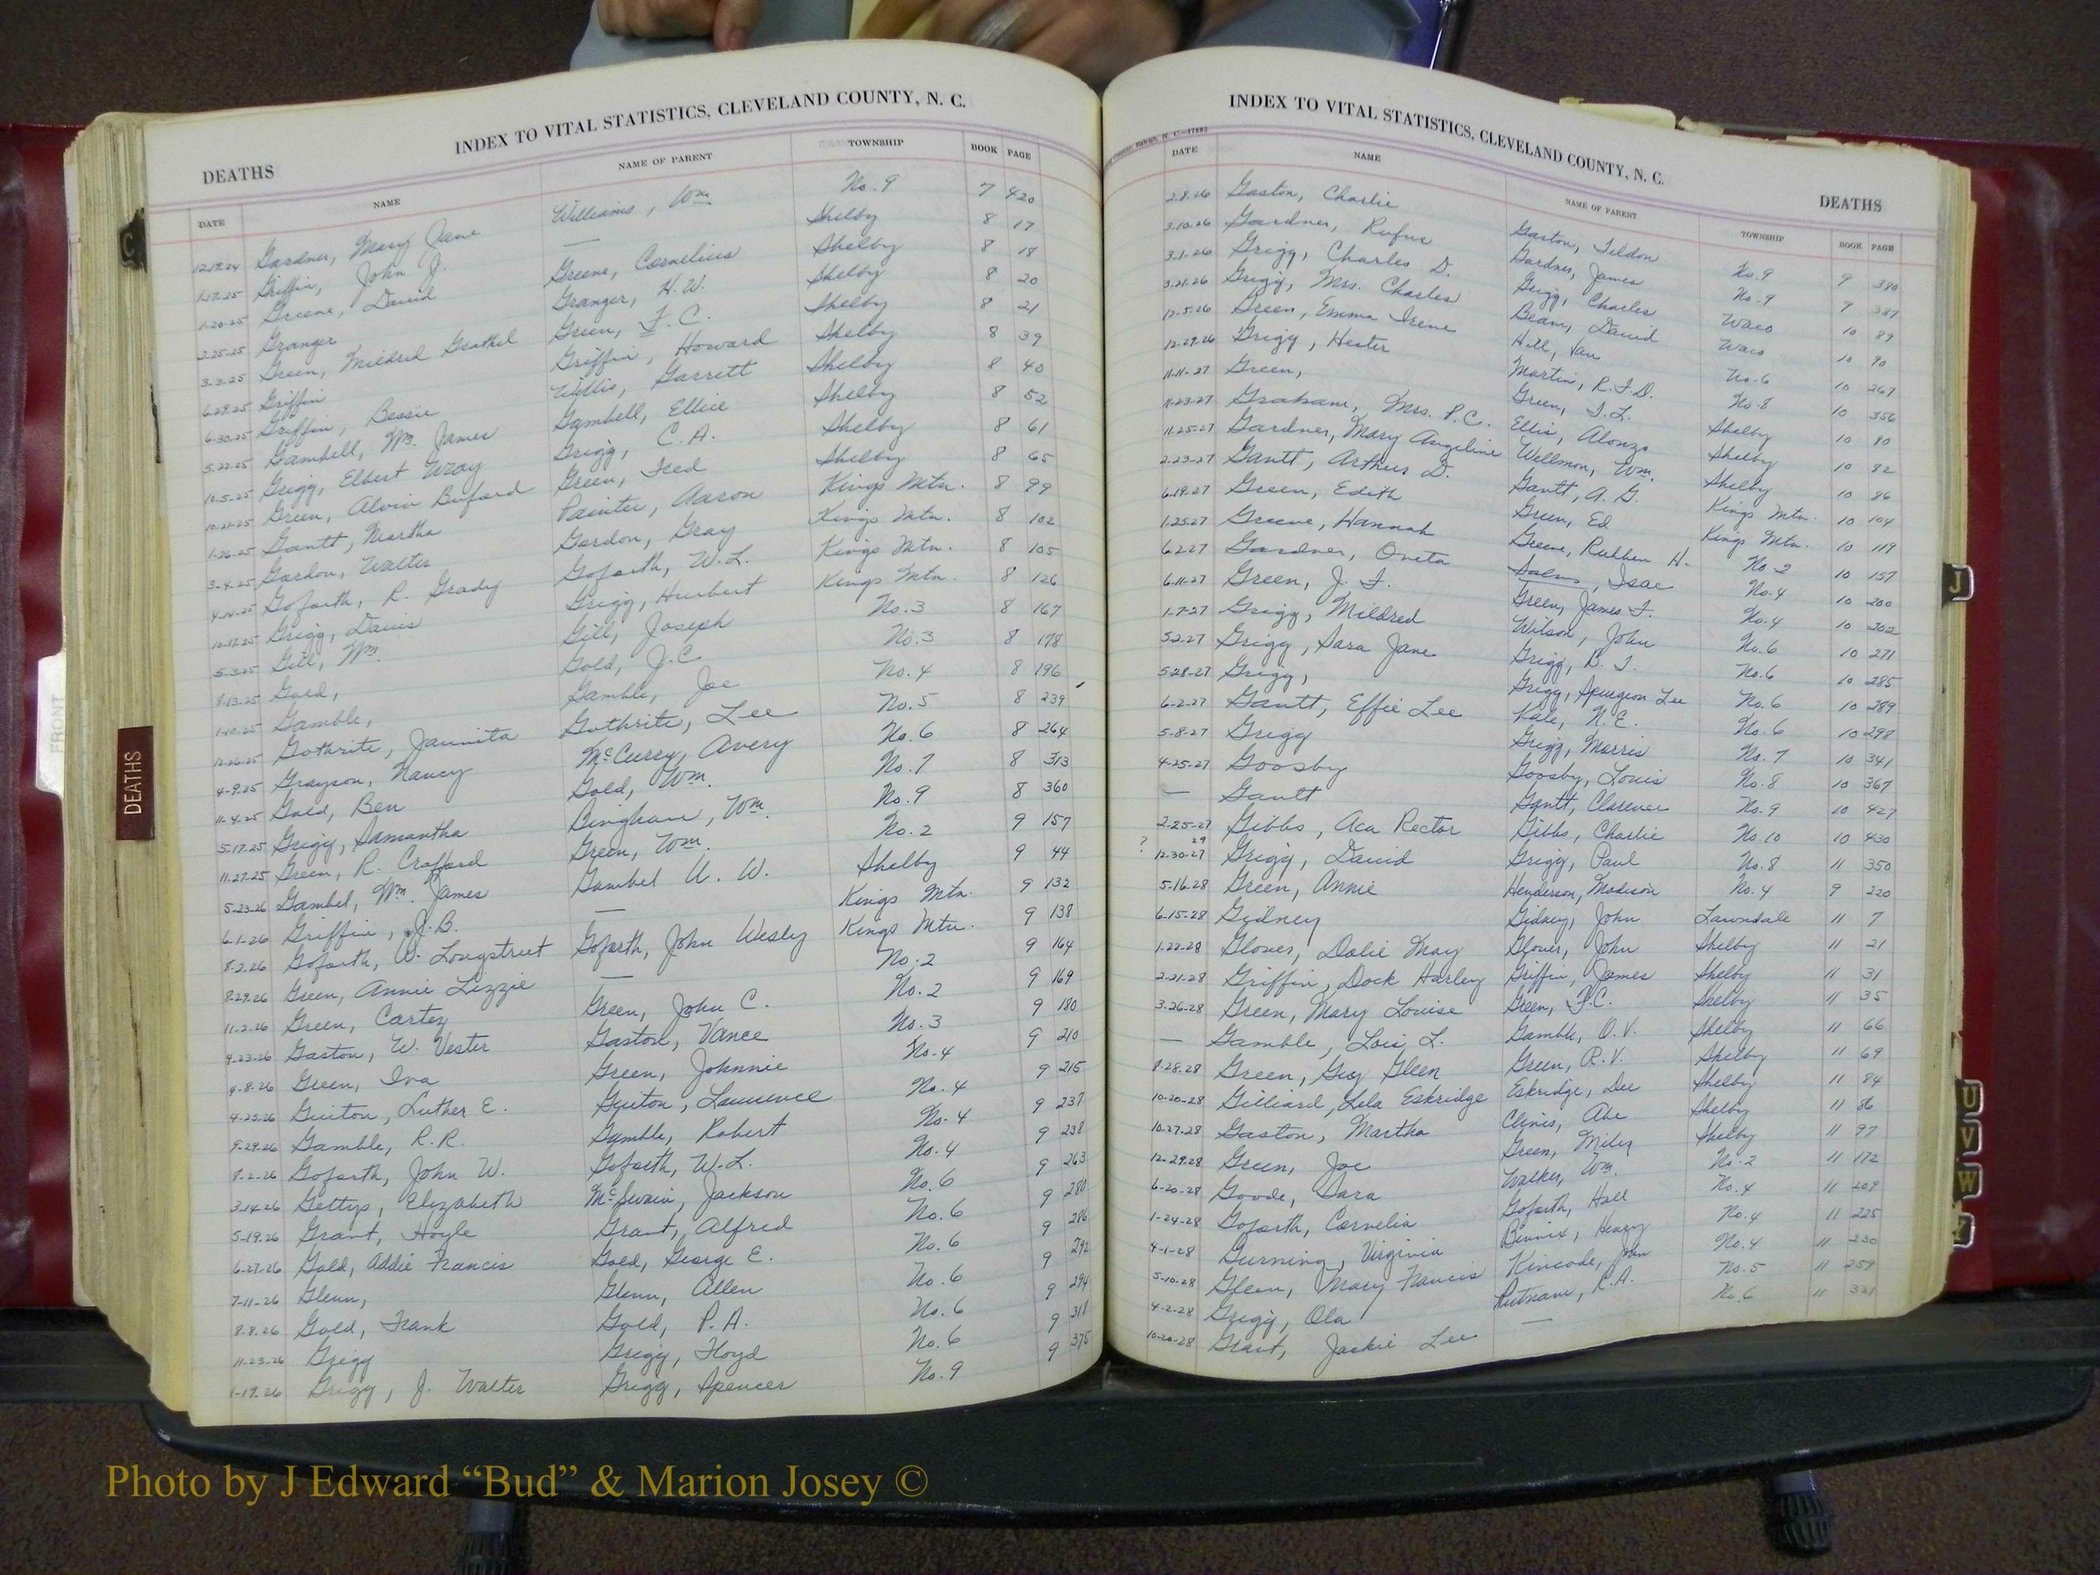 INDEX TO VITAL STATISTICS, CLEVELAND COUNTY, N. C.
DEATHS
DATE NAME NAME OF PARENT TOWNSHIP BOOK PAGE
12-19-24 Gardner, Mary Jane Williams, Wm No. 9 7 420
1-17-25 Griffin, John J. — Shelby 8 17
1-20-25 Greene, David Greene, Cornelius Shelby 8 18
2-25-25 Granger Granger, H.W. Shelby 8 20
3-3-25 Green, Mildred Green, F. C. Shelby 8 21
6-29-25 Griffin Griffin, Howard Shelby 8 39
6-30-25 Griffin, Bessie Willis, Garrett Shelby 8 40
5-22-25 Gambell, Wm. James Gambell, Ellice Shelby 8 52
10-5-25 Grigg, Elbert Wray Grigg, C. A. Shelby 8 61
10-21-25 Green, Alvin Buford Green, Fred Shelby 8 65
1-26-25 Gantt, Martha Painter, Aaron Kings Mtn. 8 99
3-4-25 Gordon, Walter Gordon, Gray Kings Mtn. 8 102
4-14-25 Goforth, R. Grady Goforth, W.L. Kings Mtn. 8 105
10-17-25 Grigg, Davis Grigg, Hurbert Kings Mtn. 8 126
5-3-25 Gill, Wm. Gill, Joseph No. 3 8 167
9-13-25 Gold, Gold, J.C. No. 3 8 178
1-10-25 Gamble, Gamble, Joe No. 4 8 196
12-26-25 Gothrite, Jaunita Gothrite, Lee No. 5 8 239
4-9-25 Grayson, Nancy McCurry, Avery No. 6 8 264
11-4-25 Gold, Ben Gold, Wm. No. 7 8 313
5-17-25 Grigg, Samantha Bingham, Wm. No. 9 8 360
11-27-25 Green, R. Crafford Green, Wm. No. 2 9 157
5-23-26 Gambel, Wm. James Gambel U. W. Shelby 9 44
6-1-26 Griffin, J.B. — Kings Mtn. 9 132
8-2-26 Goforth, W. Longstreet Goforth, John Wesley Kings Mtn. 9 138
8-29-26 Green, Annie Lizzie — No. 2 9 164
11-2-26 Green, Carter Green, John C. No. 2 9 169
4-23-26 Gaston, W. Vester Gaston, Vance No. 3 9 180
4-8-26 Green, Iva Green, Johnnie No. 4 9 210
4-25-26 Guiton, Luther E. Guiton, Lawrence No. 4 9 215
9-29-26 Gamble, R.R. Gamble, Robert No. 4 9 237
8-2-26 Goforth, John W. Goforth, W.L. No. 4 9 238
3-14-26 Gettys, Elizabeth McSwain, Jackson No. 6 9 263
5-19-26 Grant, Hoyle Grant, Alfred No. 6 9 280
6-27-26 Gold, Addie Francis Gold, George E. No. 6 9 286
7-11-26 Glenn, Glenn, Allen No. 6 9 292
8-8-26 Gold, Frank Gold, P. A. No. 6 9 294
11-23-26 Grigg Grigg, Floyd No. 6 9 318
1-19-26 Grigg, J. Walter Grigg, Spencer No. 9 9 375
INDEX TO VITAL STATISTICS, CLEVELAND COUNTY, N. C.
DEATHS
DATE NAME NAME OF PARENT TOWNSHIP BOOK PAGE
2-8-26 Gaston, Charlie Gaston, Tildon No. 9 9 380
3-10-26 Gardner, Rufus Gardner, James No. 9 9 387
3-1-26 Grigg, Charles D. Grigg, Charles Waco 10 89
3-21-26 Grigg, Mrs. Charles Beam, David Waco 10 90
12-5-26 Green, Emma Irene Hill, Van No. 6 10 267
12-29-26 Grigg, Hester Martin, R.F.D. No. 8 10 356
11-11-27 Green, Green, T.L. Shelby 10 80
11-23-27 Graham, Mrs. P.C. Ellis, Alonzo Shelby 10 82
11-25-27 Gardner, Mary Angeline Wellmon, Wm. Shelby 10 86
2-23-27 Gantt, Arthur D. Gantt, A. G. Kings Mtn. 10 104
6-19-27 Green, Edith Green, Ed Kings Mtn. 10 119
1-25-27 Greene, Hannah Greene, Rubben H. No. 2 10 157
6-2-27 Gardner, Oneta Isac No. 4 10 200
6-11-27 Green, J. F. Green, James F. No. 4 10 202
1-7-27 Grigg, Mildred Wilson, John No. 6 10 271
5-2-27 Grigg, Sara Jane Grigg, B. T. No. 6 10 285
5-28-27 Grigg, Grigg, Spurgeon Lee No. 6 10 289
6-2-27 Gantt, Effie Lee Kale, N.E. No. 6 10 298
5-8-27 Grigg Grigg, Morris No. 7 10 341
4-25-27 Goosby Goosby, Louis No. 8 10 367
— Gantt Gantt, Clarence No. 9 10 427
2-25-27 Gibbs, Aca Rector Gibbs, Charlie No. 10 10 430
? 29
12-30-27 Grigg, David Grigg, Paul No. 8 11 350
5-16-28 Green, Annie Henderson, Madison No. 4 9 220
6-15-28 Gidney Gidney, John Lawndale 11 7
1-22-28 Glover, Dolie May Glover, John Shelby 11 21
2-21-28 Griffin, Dock Harley Griffin, James Shelby 11 31
3-26-28 Green, Mary Louise Green, F.C. Shelby 11 35
— Gamble, Lois L. Gamble, O.V. Shelby 11 66
8-28-28 Green, Geo Gleen Green, R.V. Shelby 11 69
10-20-28 Gilliard, Lela Eskridge Eskridge, Dee Shelby 11 84
10-27-28 Gaston, Martha Clinis, Abe Shelby 11 86
12-29-28 Green, Joe Green, Miley Shelby 11 97
6-20-28 Goode, Sara Walker, Wm. No. 2 11 172
1-24-28 Goforth, Cornelia Goforth, Hall No. 4 11 209
4-1-28 Gurning, Virginia Henry No. 4 11 225
5-10-28 Mary Francis Kincade, John No. 4 11 230
4-2-28 Grigg, Ola Putnam, R.A. No. 5 11 259
10-20-28 Grant, Jackie Lee — No. 6 11 331
DEATHS
FRONT
C
J
U
V
W
Photo by J Edward “Bud” & Marion Josey ©